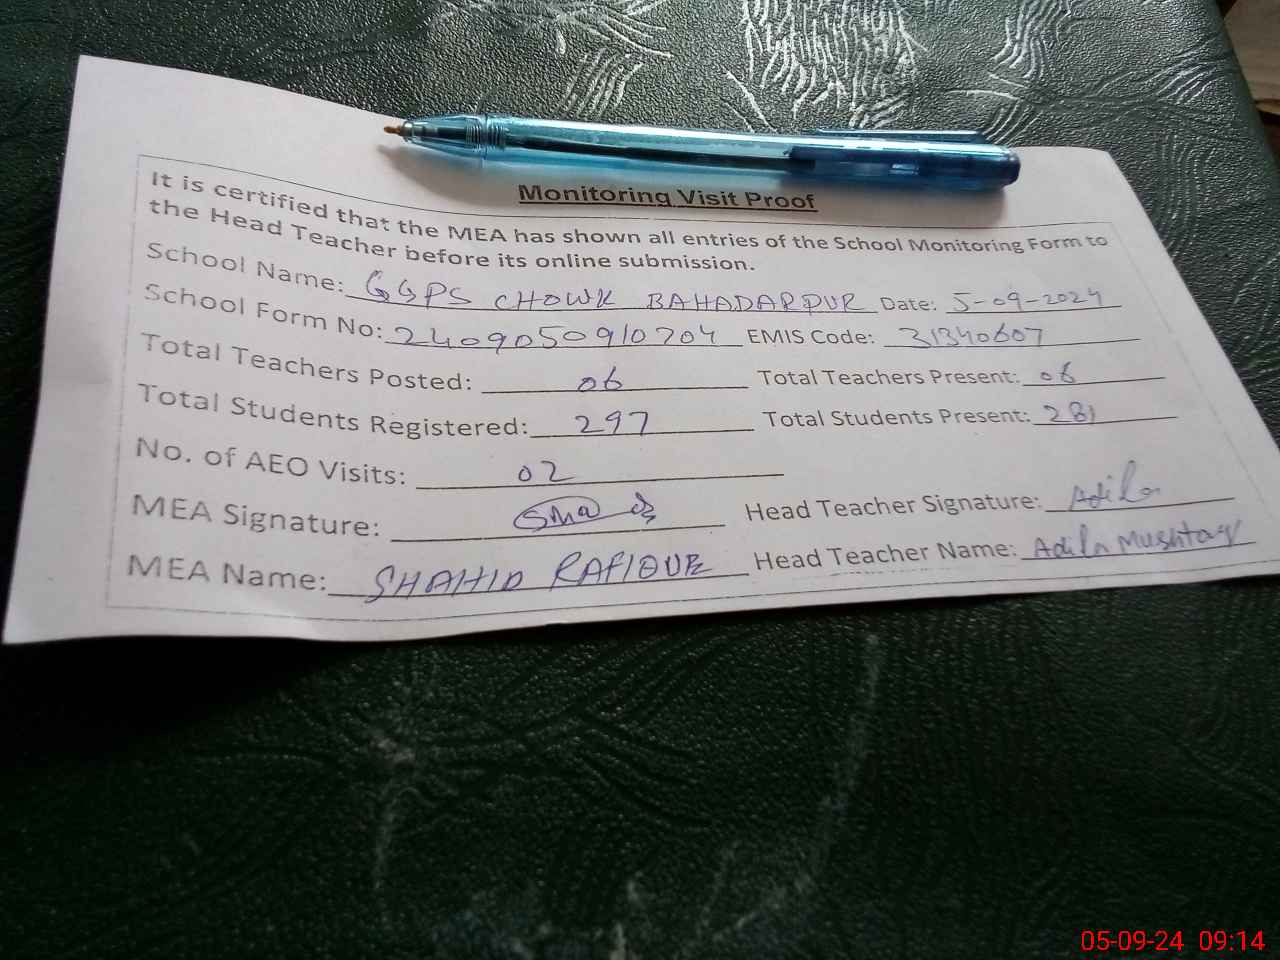 Monitoring Visit Proof
It is certified that the MEA has shown all entries of the School Monitoring Form to
the Head Teacher before its online submission.
School Name: GGPS CHOWK BAHADARPUR Date: 5-09-2024
School Form No: 2409050910704 EMIS Code: 31340607
Total Teachers Posted: 06 Total Teachers Present: 06
Total Students Registered: 297 Total Students Present: 281
No. of AEO Visits: 02
MEA Signature: Head Teacher Signature: Adila
MEA Name: SHAHID RAFIQUE Head Teacher Name: Adila Mushtaq
05-09-24 09:14